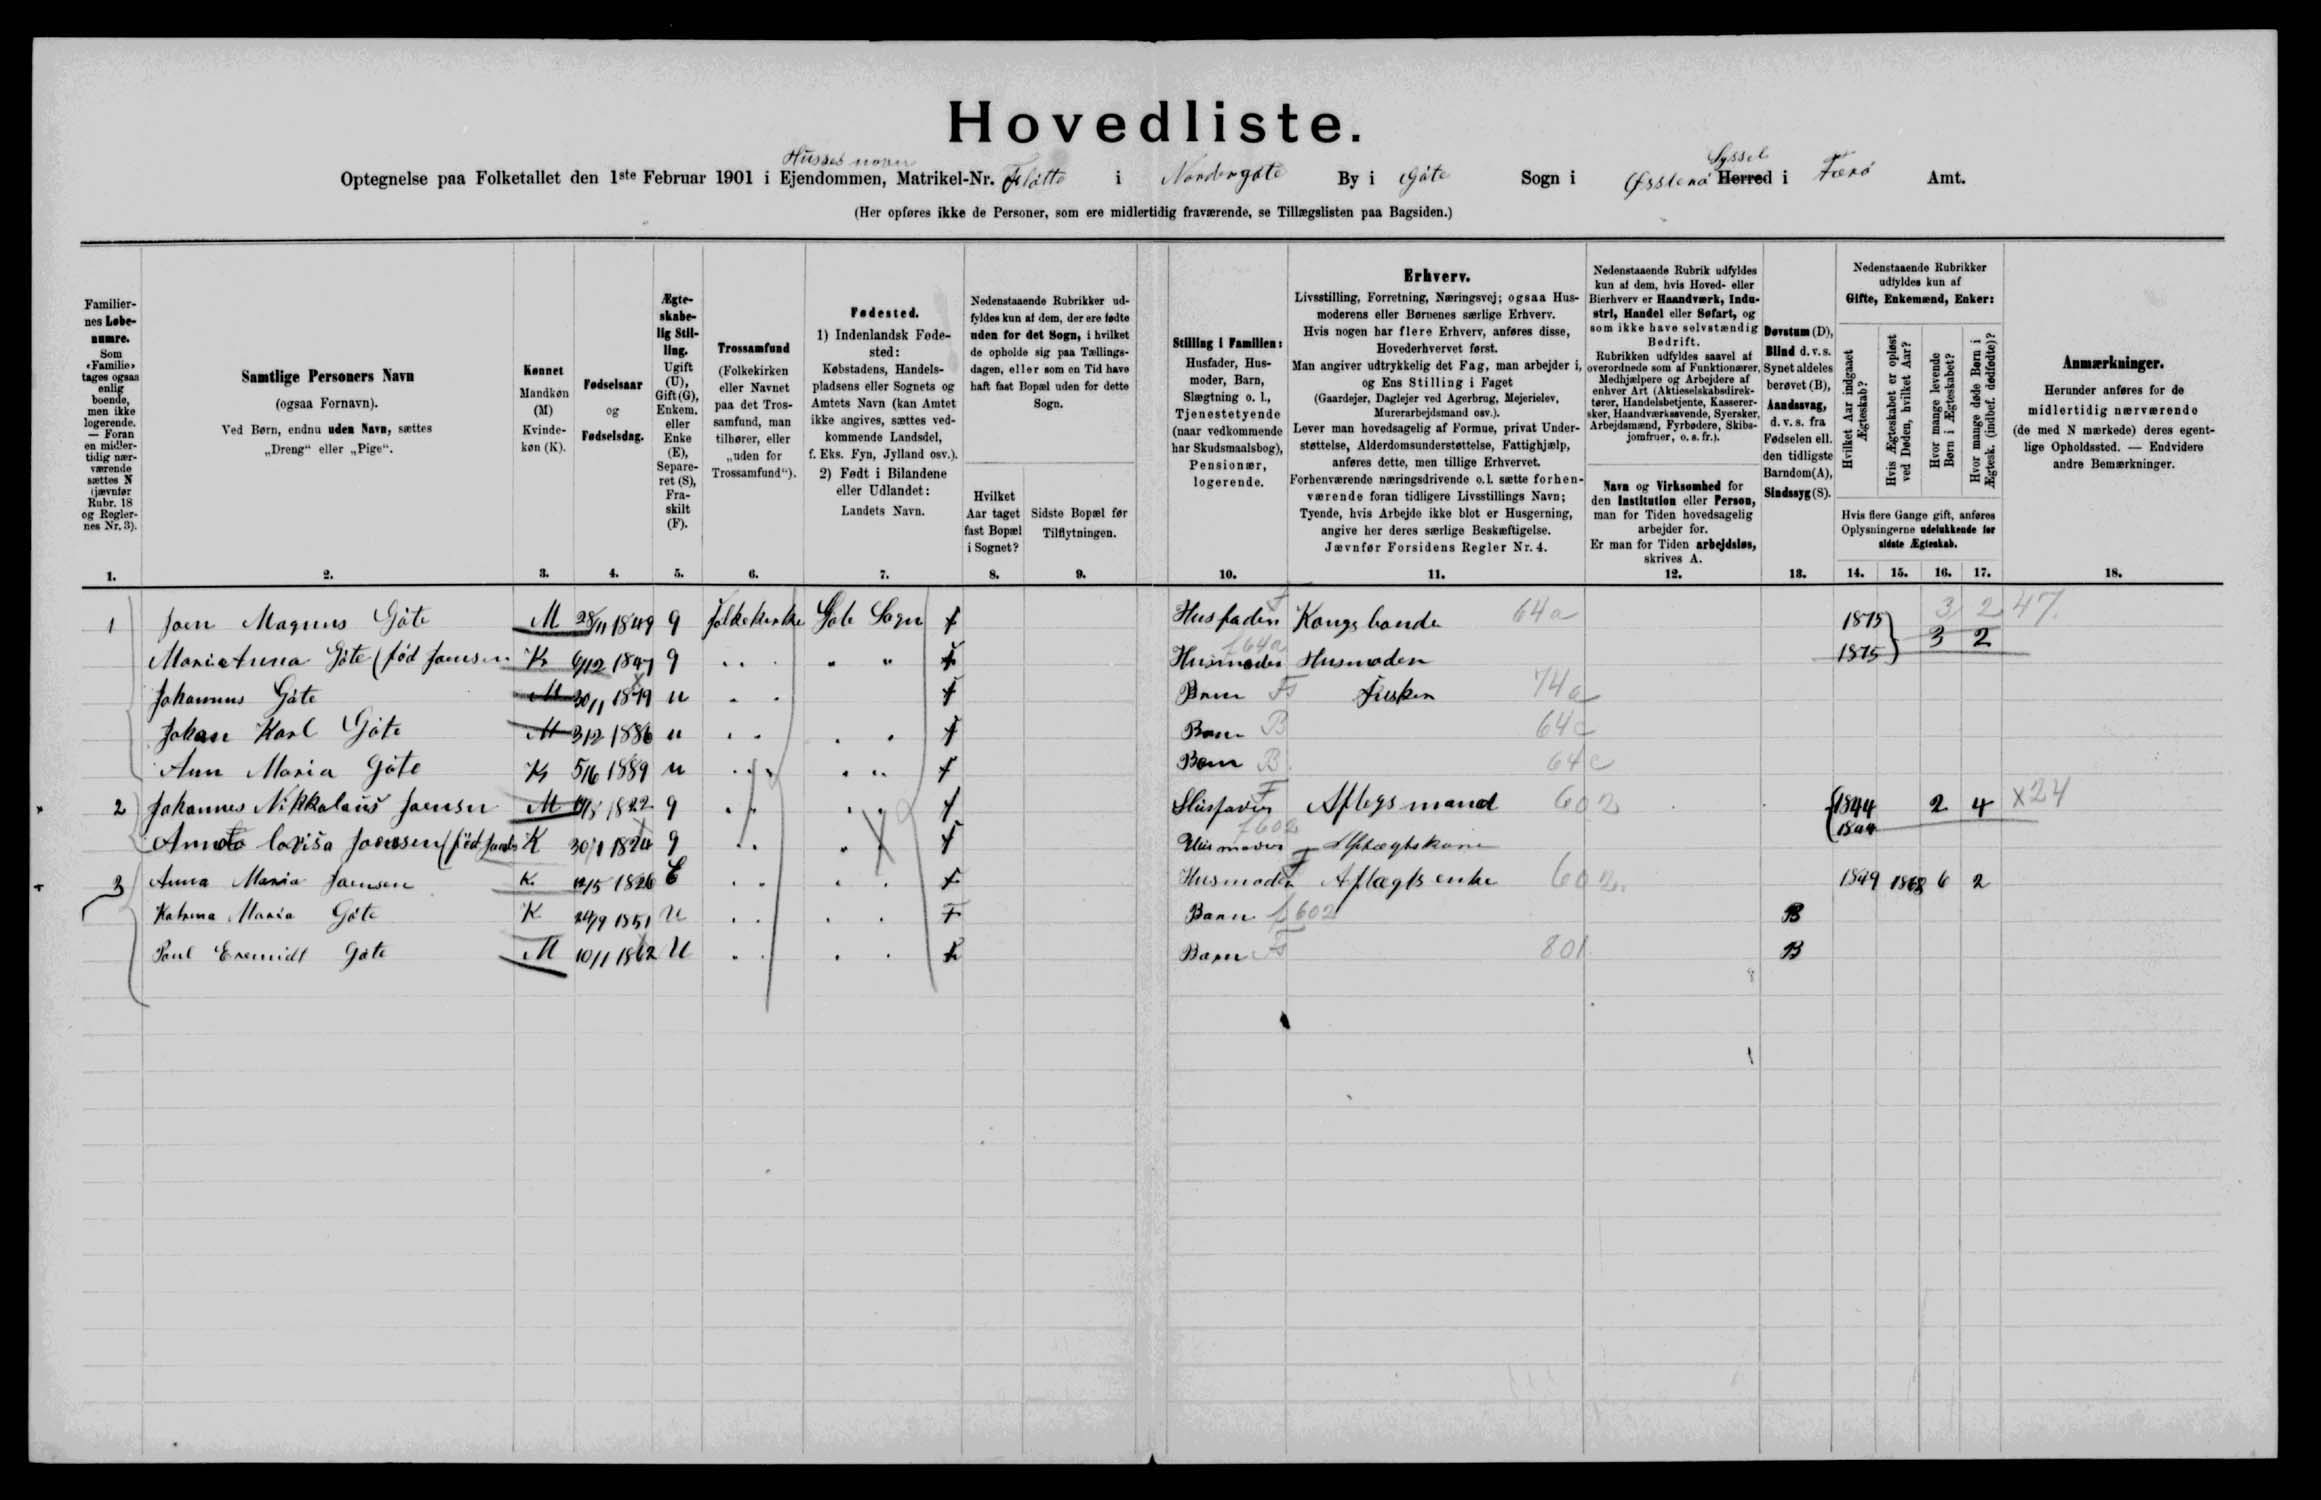 Hovedliste.
Husets navn
Syssel
Optegnelse paa Folketallet den 1ste Februar 1901 i Ejendommen, Matrikel-Nr. Flòtte i Nordergöte By i Göte Sogn i Østerø Herred i Færø Amt.
(Her opføres ikke de Personer, som ere midlertidig fraværende, se Tillægslisten paa Bagsiden.)
Familiernes Løbenumre.
Som «Familie» tages ogsaa enlig boende, men ikke logerende. — Foran en midlertidig nærværende sættes N (jævnfør Rubr. 18 og Reglernes Nr. 3).
Samtlige Personers Navn
(ogsaa Fornavn).
Ved Børn, endnu uden Navn, sættes
„Dreng“ eller „Pige“.
Kønnet
Mandkøn (M)
Kvindekøn (K).
Fødselsaar
og
Fødselsdag.
Ægteskabelig Stilling.
Ugift (U), Gift (G), Enkem. eller Enke (E), Separeret (S), Fraskilt (F).
Trossamfund
(Folkekirken eller Navnet paa det Trossamfund, man tilhører, eller „uden for Trossamfund“).
Fødested.
1) Indenlandsk Fødested:
Købstadens, Handelspladsens eller Sognets og Amtets Navn (kan Amtet ikke angives, sættes vedkommende Landsdel, f. Eks. Fyn, Jylland osv.).
2) Født i Bilandene eller Udlandet:
Landets Navn.
Nedenstaaende Rubrikker udfyldes kun af dem, der ere fødte uden for det Sogn, i hvilket de opholde sig paa Tællingsdagen, eller som en Tid have haft fast Bopæl uden for dette Sogn.
Hvilket Aar taget fast Bopæl i Sognet?
Sidste Bopæl før Tilflytningen.
Stilling i Familien:
Husfader, Husmoder, Barn, Slægtning o. l., Tjenestetyende (naar vedkommende har Skudsmaalsbog), Pensionær, logerende.
Erhverv.
Livsstilling, Forretning, Næringsvej; ogsaa Husmoderens eller Børnenes særlige Erhverv.
Hvis nogen har flere Erhverv, anføres disse, Hovederhvervet først.
Man angiver udtrykkelig det Fag, man arbejder i, og Ens Stilling i Faget
(Gaardejer, Daglejer ved Agerbrug, Mejerielev, Murerarbejdsmand osv.).
Lever man hovedsagelig af Formue, privat Understøttelse, Alderdomsunderstøttelse, Fattighjælp, anføres dette, men tillige Erhvervet.
Forhenværende næringsdrivende o. l. sætte forhenværende foran tidligere Livsstillings Navn;
Tyende, hvis Arbejde ikke blot er Husgerning, angive her deres særlige Beskæftigelse.
Jævnfør Forsidens Regler Nr. 4.
Nedenstaaende Rubrik udfyldes kun af dem, hvis Hoved- eller Bierhverv er Haandværk, Industri, Handel eller Søfart, og som ikke have selvstændig Bedrift.
Rubrikken udfyldes saavel af overordnede som af Funktionærer, Medhjælpere og Arbejdere af enhver Art (Aktieselskabsdirektører, Handelsbetjente, Kasserersker, Haandværkssvende, Syersker, Arbejdsmænd, Fyrbødere, Skibsjomfruer, o. s. fr.).
Navn og Virksomhed for den Institution eller Person, man for Tiden hovedsagelig arbejder for.
Er man for Tiden arbejdsløs, skrives A.
Døvstum (D), Blind d. v. s. Synet aldeles berøvet (B), Aandssvag, d. v. s. fra Fødselen ell. den tidligste Barndom (A), Sindssyg (S).
Nedenstaaende Rubrikker udfyldes kun af
Gifte, Enkemænd, Enker:
Hvilket Aar indgaaet Ægteskab?
Hvis Ægteskabet er opløst ved Døden, hvilket Aar?
Hvor mange levende Børn i Ægteskabet?
Hvor mange døde Børn i Ægtesk. (indbef. dødfødte)?
Hvis flere Gange gift, anføres Oplysningerne udelukkende for sidste Ægteskab.
Anmærkninger.
Herunder anføres for de midlertidig nærværende (de med N mærkede) deres egentlige Opholdssted. — Endvidere andre Bemærkninger.
1. 2. 3. 4. 5. 6. 7. 8. 9. 10. 11. 12. 13. 14. 15. 16. 17. 18.
1 Joen Magnus Göte M 28/11 1849 g Folkekirke Göte Sogn f Husfader F Kongsbonde 64a 1875 3 2 47.
Maria Anna Göte (fød Joensen K 6/12 1847 g " " " " f Husmoder f64a Husmoder 1875 3 2
Johannus Göte M 30/11 1879 u " " f Barn Fs Fisker 74a
Johan Karl Göte M 3/2 1886 u " " " " f Barn B 64c
Ann Maria Göte K 5/6 1889 u " " " " f Barn B 64c
2 Johannes Nikkolaus Joensen M 1822 g " " " " f Husfader F Aflegsmand 602 1844 2 4 x24
Lovisa Joensen (fød K 30/1 1824 g " " f Husmoder f602 1844
3 Anna Maria Joensen K 12/5 1826 E " " " " f Husmoder F Aflægts enke 602 1849 1868 6 2
Katrina Maria Göte K 24/9 1851 U " " " " F Barn f602 B
Poul Göte M 10/11 1862 U " " " " f Barn Fs 801 B